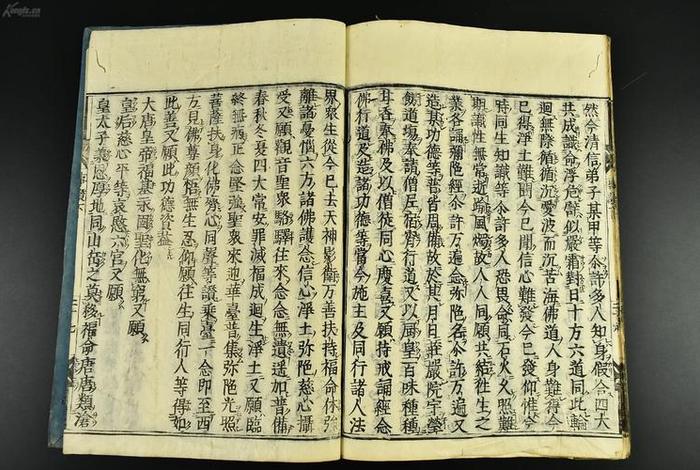 然今清信弟子某甲等介許多人知身假合四大
共成識命浮危譬似嚴霜對日十方六道同此輪
迴無際循循沉愛波而沉苦海佛道人身難得今
已得淨土難聞今已聞信心難發今已發仰惟今
時同生知識等介許多人恐畏命同石火久照難
期識性無常逝踰風燭故人人同願共結往生之
業各誦彌陀經介許万遍念彌陀名介許万遍又
造某功德等普皆周備故於其月日莊嚴院宇瑩
餝道場奉請僧尼宿宵行道又以厨皇百味種種
甘香奉佛及以僧徒同心慶喜又願持戒誦經念
佛行道及造諸功德等當今施主及同行諸人法
界衆生從今已去天神影衛万善扶持福命休強
離諸憂惱六方諸佛護念信心淨土弥陀慈心攝
受又願觀音聖衆駱驛往來念念無遺遥加普備
春秋冬夏四大常安罪滅福成迴生淨土又願臨
終無病正念堅強聖衆來迎華臺普集弥陀光照
菩薩扶身化佛齊心同聲等讚乘臺一念即至西
方見佛尊顔悟無生忍仰願往生同行人等得如
此善又願此功德資益
大唐皇帝福基永固聖化無窮又願
皇后慈心平等哀愍六宮又願
皇太子承恩厚地同山岳之莫移福命唐唐類滄
Kongfz.cn